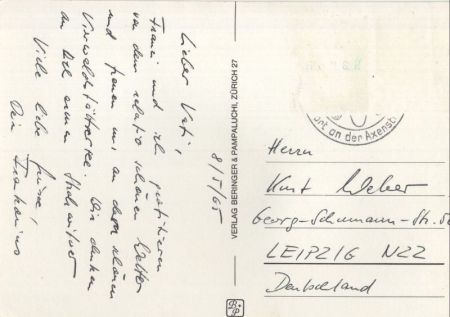 8/5/65
Lieber Vati,
Franci und ich profitieren
von dem relativ schönen Wetter
und freuen uns an dem schönen
Vierwaldstättersee. Wir denken
an Dich
Viele liebe Grüsse,
Dein
VERLAG BERINGER & PAMPALUCHI, ZÜRICH 27
ort an der Axenst
Herrn
Kurt Weber
Georg-Schumann-Str.
LEIPZIG N22
Deutschland